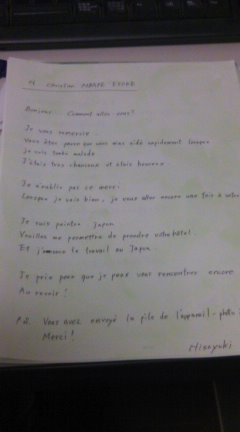 M Christian
Bonjour. Comment allez-vous?
Je vous remercie.
Vous êtes parce que vous m'as aidé rapidement lorsque
Je suis tombé malade.
J'étais très chanceux et étais heureux.
Je n'oublie pas ce merci.
Lorsque je vais bien, je vous aller encore une fois à votre
Je suis peintre Japon
Veuillez me permettre de prendre votre hôtel.
Et j'annonce le travail au Japon.
Je prie pour que je peux vous rencontrer encore
Au revoir!
P.S. Vous avez envoyé la pile de l'appareil-photo
Merci!
Hisayuki